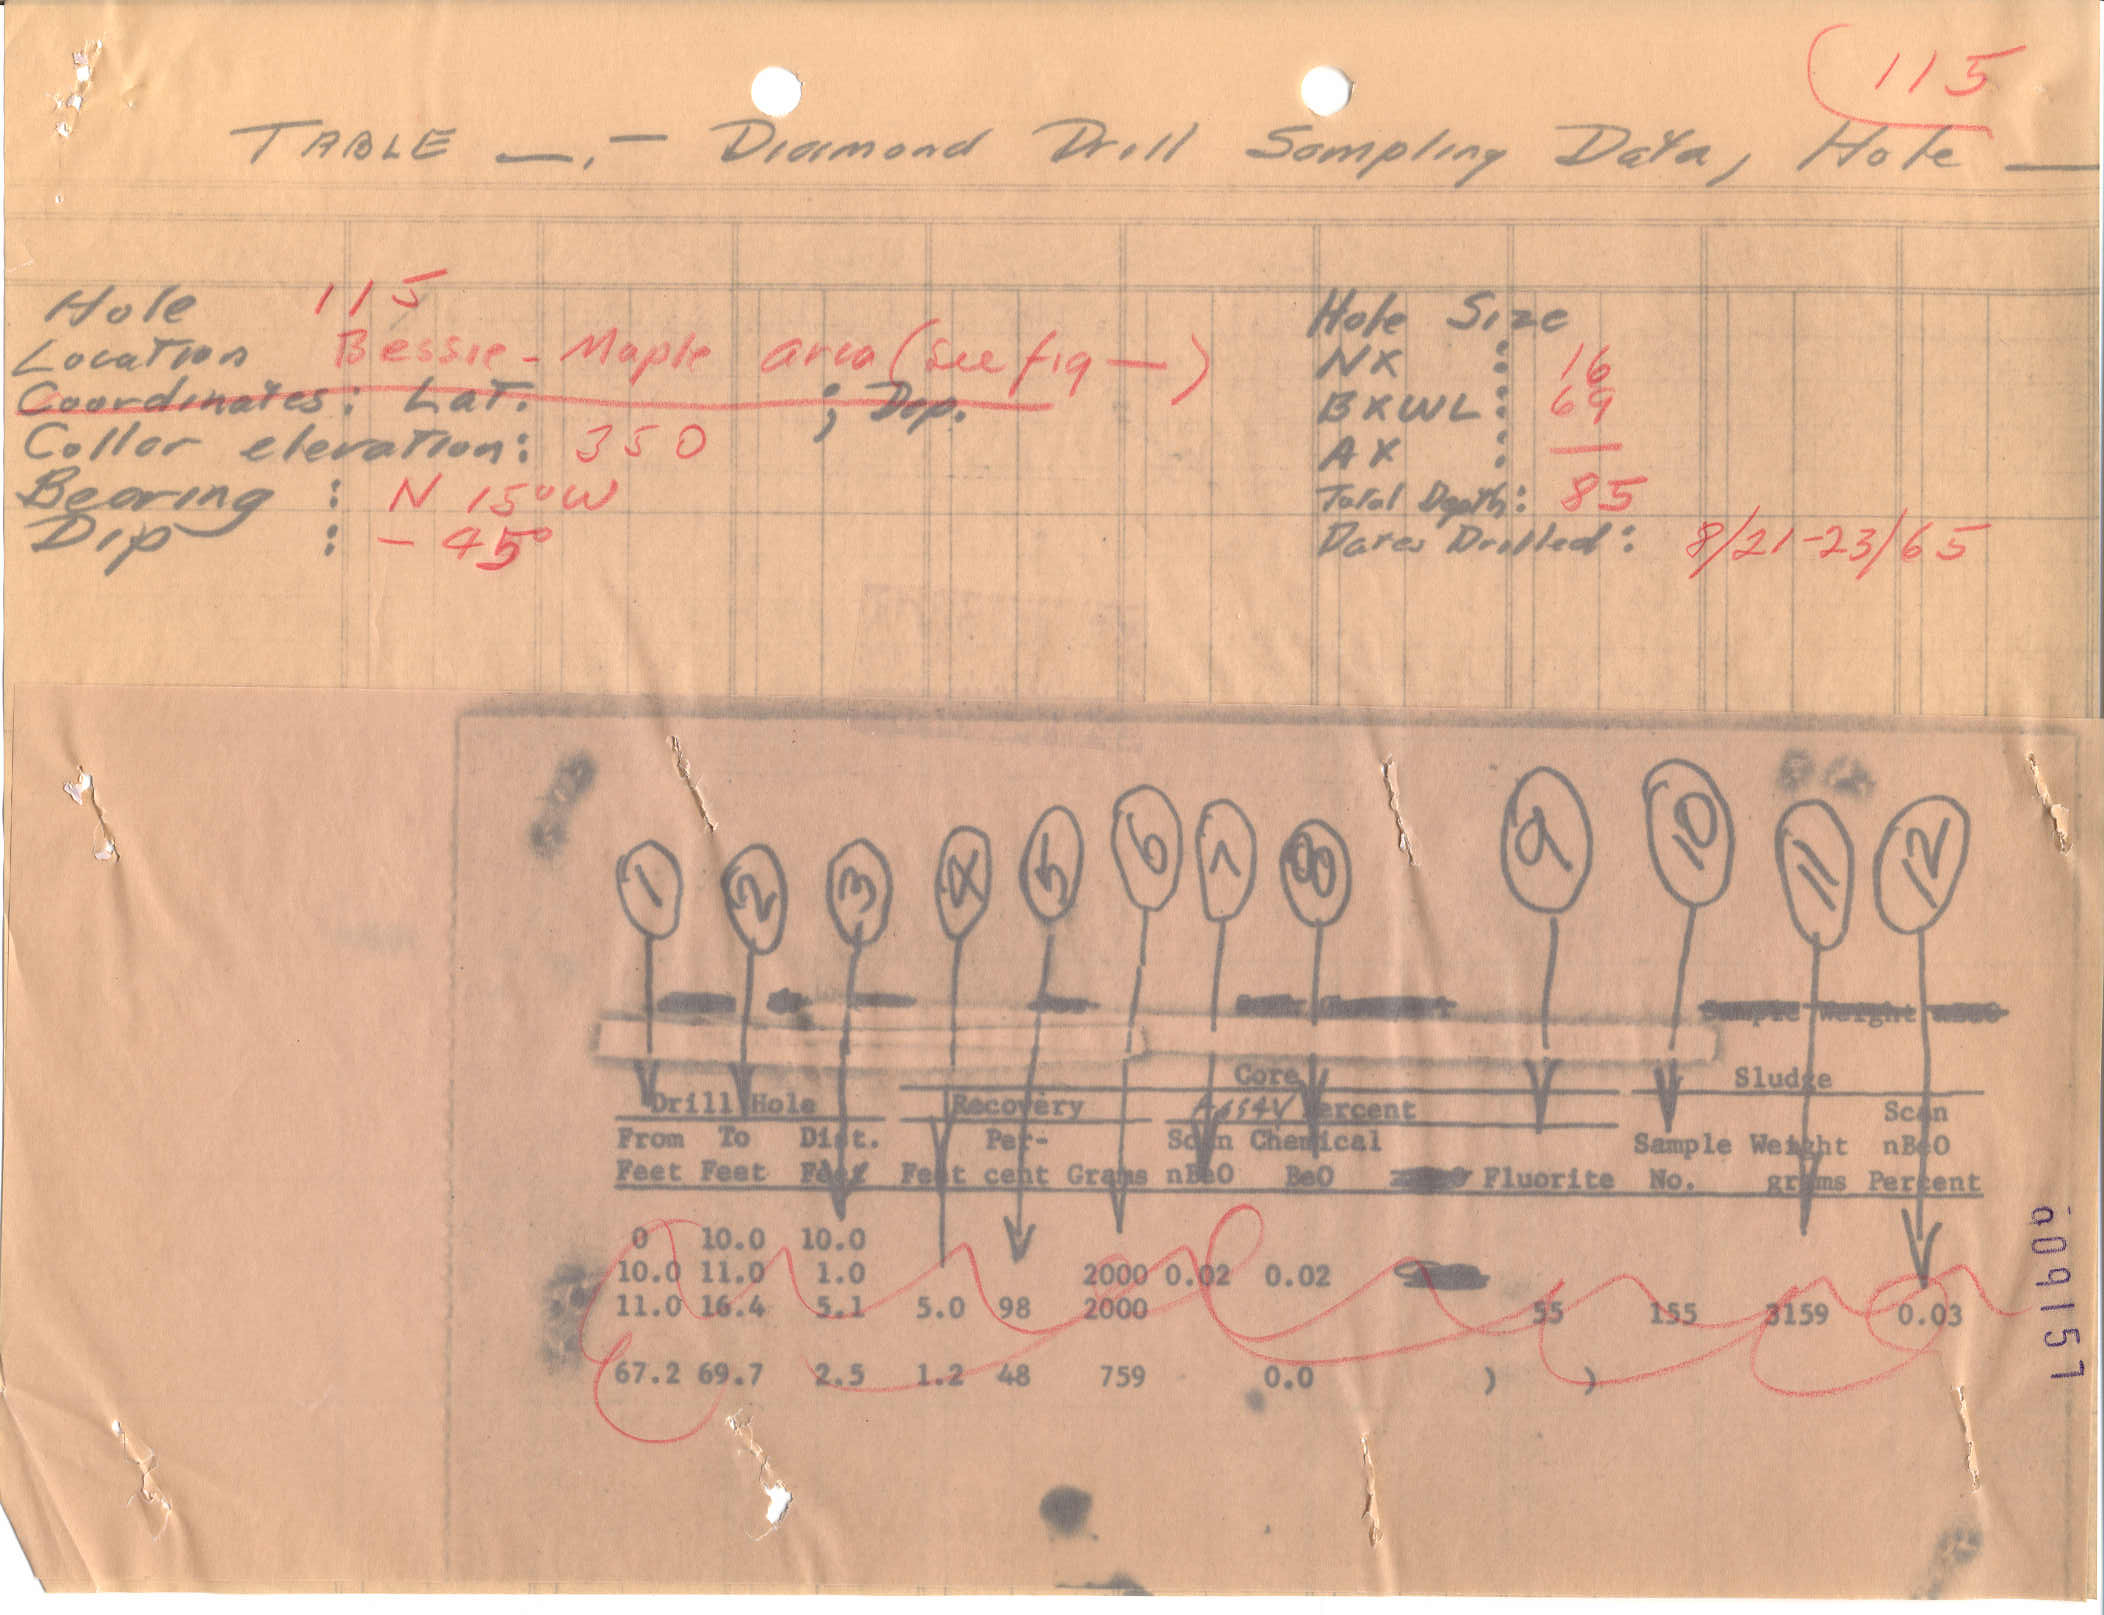 115
TABLE __.- Diamond Drill Sampling Data, Hole __
Hole 115
Location Bessie-Maple area (see fig —)
Coordinates: Lat. ; Dep.
Collar elevation: 350
Bearing : N 15°W
Dip : -45°
Hole Size
NX : 16
BXWL: 69
AX : —
Total Depth: 85
Dates Drilled: 8/21-23/65
1 2 3 4 5 6 7 8 9 10 11 12
Sample Weight nBeO
Core Sludge
Drill Hole Recovery Assay Percent Scan
From To Dist. Per- Scan Chemical Sample Weight nBeO
Feet Feet Feet Feet cent Grams nBeO BeO Fluorite No. grams Percent
0 10.0 10.0
10.0 11.0 1.0 2000 0.02 0.02
11.0 16.4 5.1 5.0 98 2000 55 155 3159 0.03
67.2 69.7 2.5 1.2 48 759 0.0 ) )
a09157